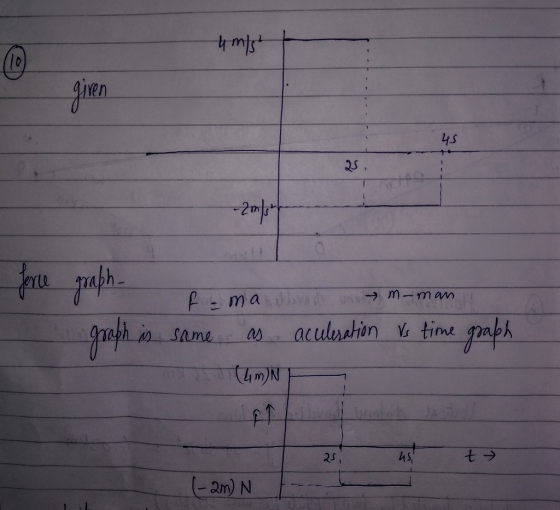 4 m/s²
10
given
4s
2s
-2m/s²
force graph-
F = ma → m-man
graph is same as aculeration vs time graph
(4m)N
F↑
2s 4s t →
(-2m) N